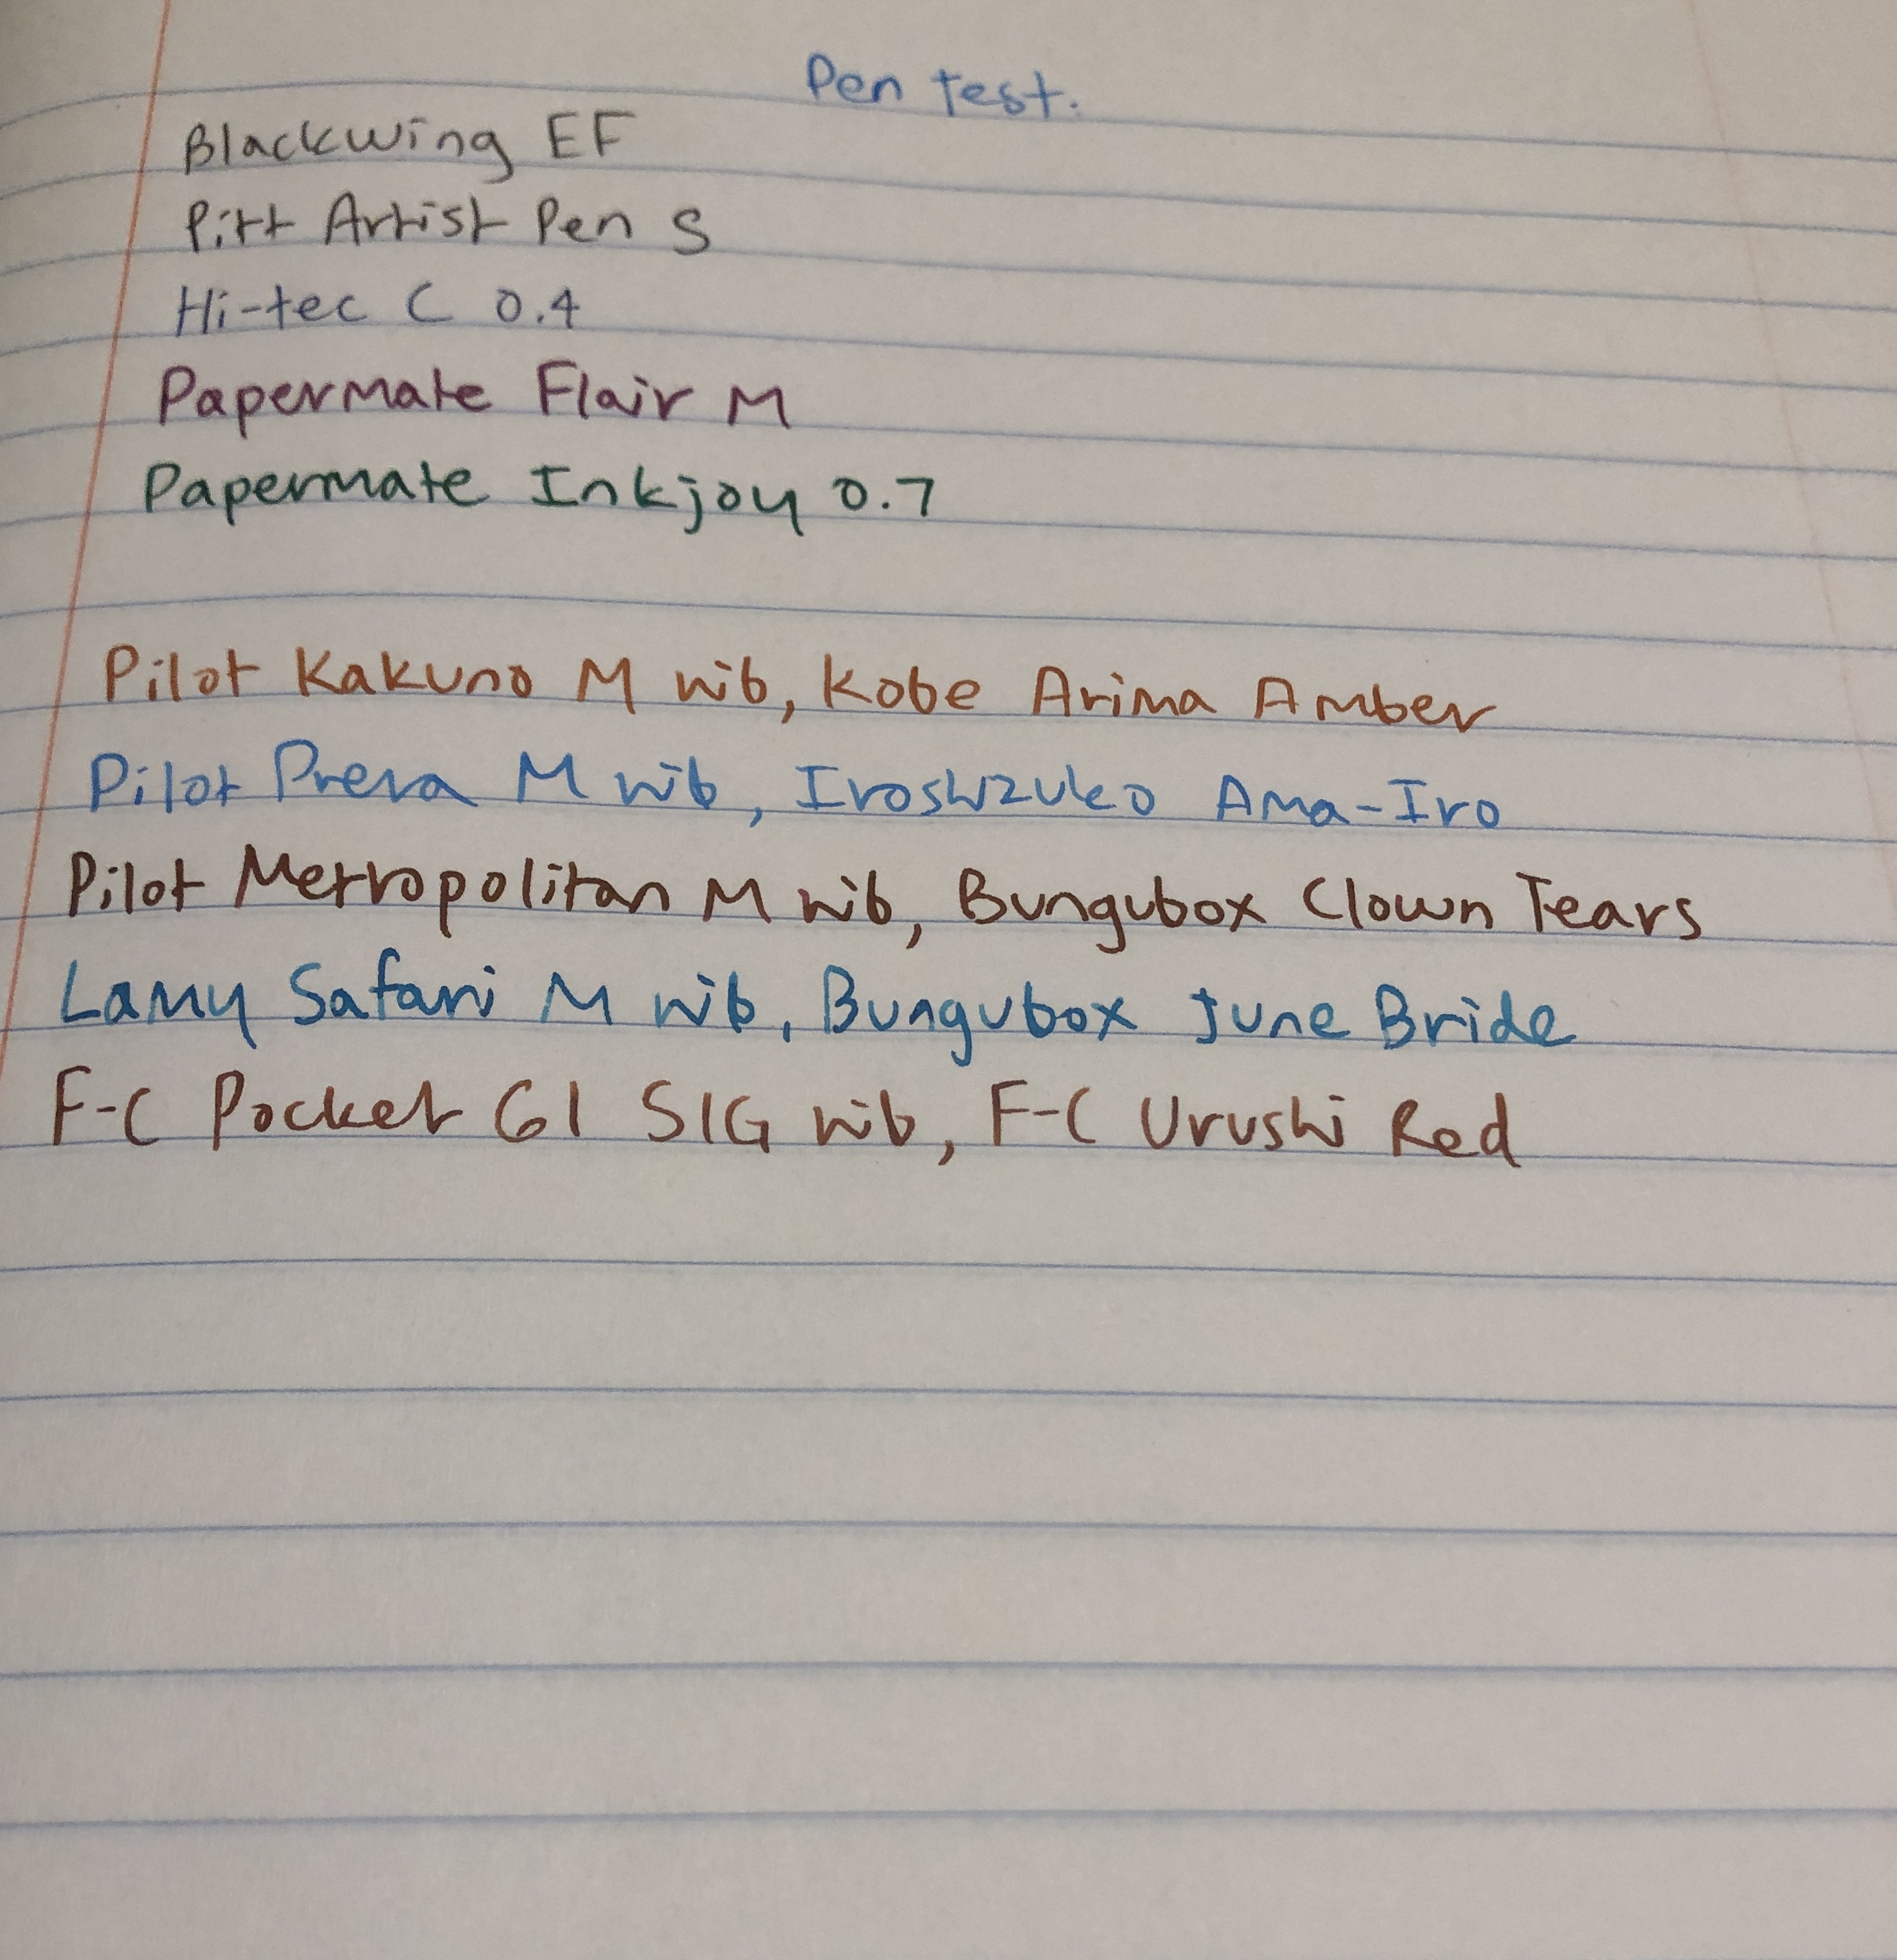 Pen Test.
Blackwing EF
Pitt Artist Pen S
Hi-tec C 0.4
Papermate Flair M
Papermate Inkjoy 0.7
Pilot Kakuno M nib, Kobe Arima Amber
Pilot Prera M nib, Iroshizuko Ama-Iro
Pilot Metropolitan M nib, Bungubox Clown Tears
Lamy Safari M nib, Bungubox June Bride
F-C Pocket 61 SIG nib, F-C Urushi Red